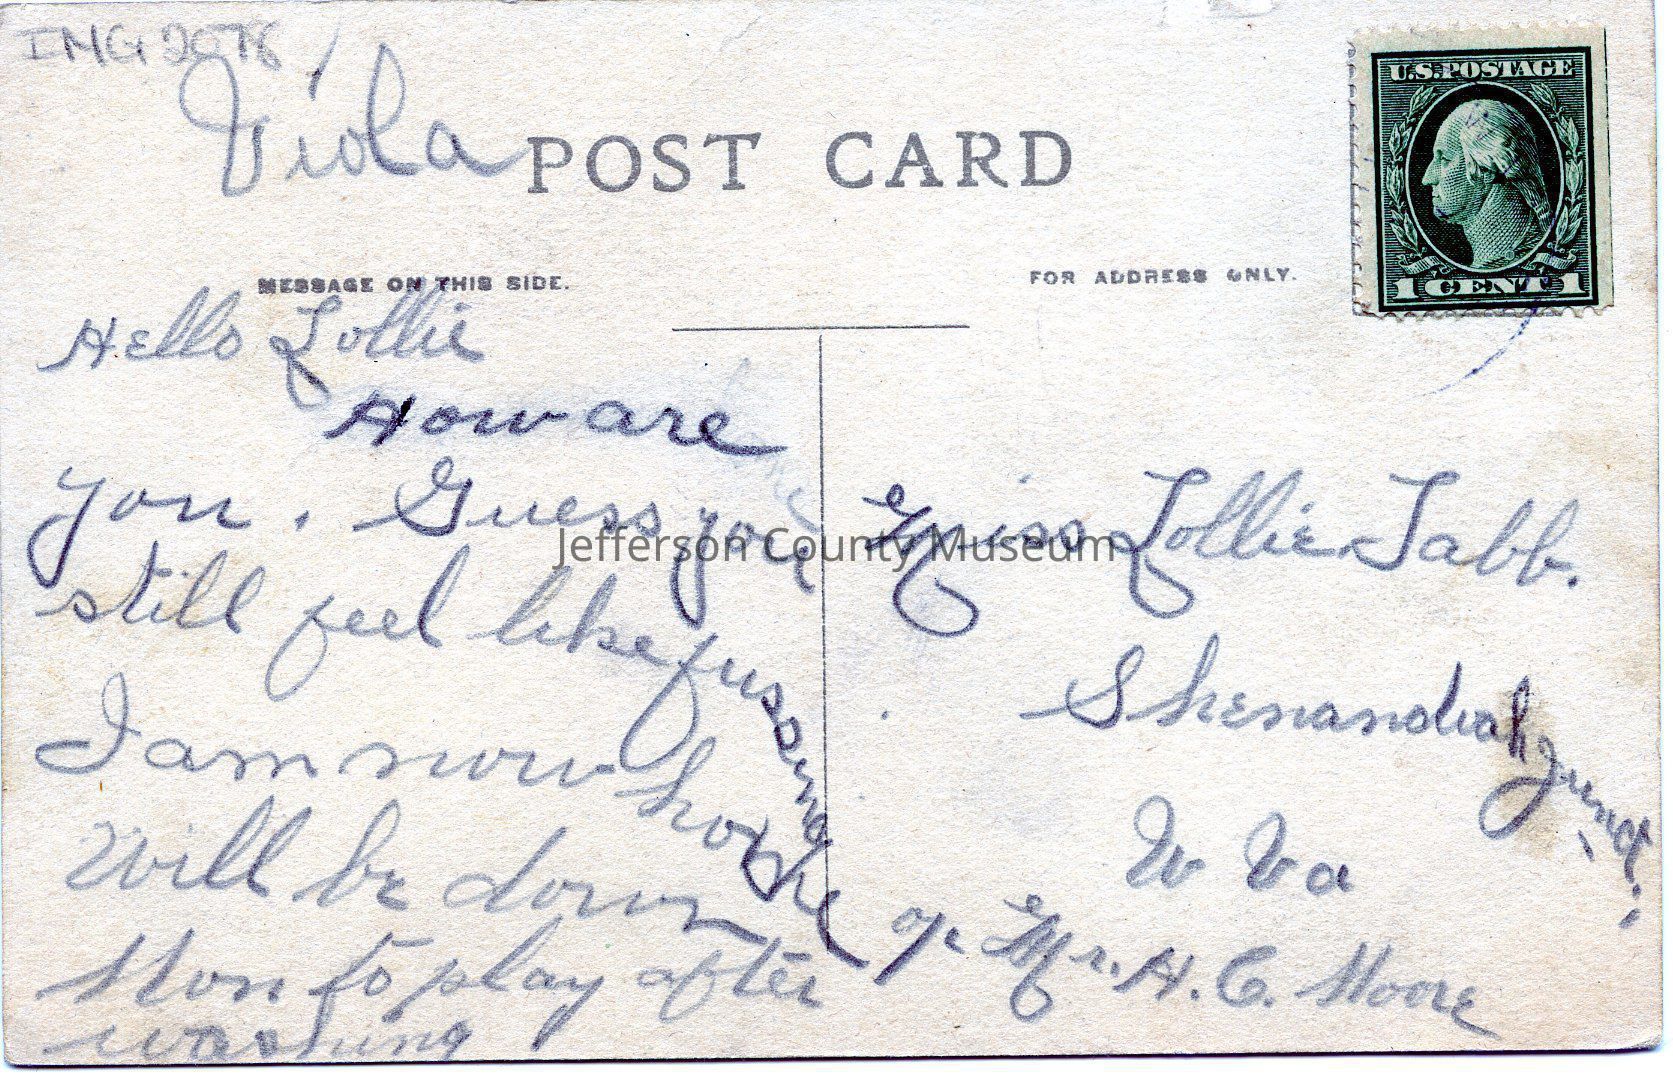 IMG 2078
Viola
POST CARD
U.S. POSTAGE
1 CENT 1
MESSAGE ON THIS SIDE.
FOR ADDRESS ONLY.
Hello Lollie
How are
you. Guess you
still feel like fussing
I am now home
Will be down
Mon to play after
washing
Jefferson County Museum
Miss Lollie Tabb.
Shenandoah Junct.
W Va
c/o Mr. H. C. Moore